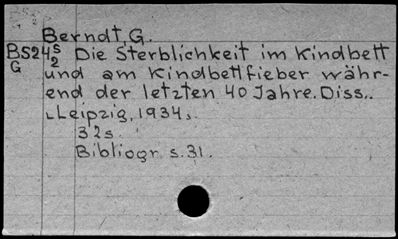 Berndt, G.
B524S Die Sterblichkeit im Kindbett
G 2 und am Kindbettfieber währ-
end der letzten 40 Jahre. Diss..
Leipzig, 1934.
32s.
Bibliogr. s.31.